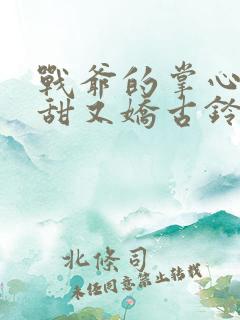 戰爺的掌心
甜又嬌古鈴
北條司
未經同意禁止轉載